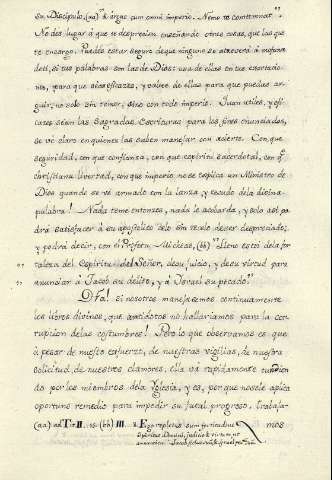 su Discipulo, (aa) à argüir con omni imperio. Nemo te contemnat.
No des lugar à que te desprecien enseñando otras cosas, que las que
te encargo. Puedes estar seguro de que ninguno se atreverá à mofarse
de ti, si tus palabras son las de Dios: usa de ellas en tus exortacio-
nes, para que sean eficaces, y valete de ellas para que puedas ar-
guir, no solo sin temor, sino con todo imperio. Quan utiles, y efi-
cazes sean las Sagradas Escrituras para los fines enunciados,
se vé claro en quienes las saben manejar con acierto. Con que
seguridad, con que confianza, con que espiritu sacerdotal, con q.e
christiana libertad, con que imperio no se explica un Ministro de
Dios quando se vé armado con la lanza, y escudo de la divina
palabra! Nada teme entonces, nada le acobarda, y solo asi po-
drá satisfacer à su apostolico zelo sin rezelo de ser despreciado;
y podrá decir, con el Profeta Micheas, (bb) "Lleno estoi de la for-
" taleza del Espiritu del Señor, de su juicio, y de su virtud para
" anunciar à Jacob su delito, y à Israel su pecado."
Ôh! si nosotros manejasemos continuamente
los libros divinos, que antidotos no hallariamos para la cor-
rupcion de las costumbres! Pero lo que observamos es que
à pesar de nuestro esfuerzo, de nuestras vigilias, de nuestra
solicitud de nuestros clamores, Ella vá rapidamente cundien-
do por los miembros de la Yglesia, y es, porque no se le aplica
oportuno remedio para impedir su fatal progreso. Trabaja-
(aa) ad Tit. II. 15. (bb) III. 8. Ego repletus sum fortitudine mos
Spiritus Domini, judicio & virtute, ut
annuntiem Jacob scelus suum, & Israel pec. suum.